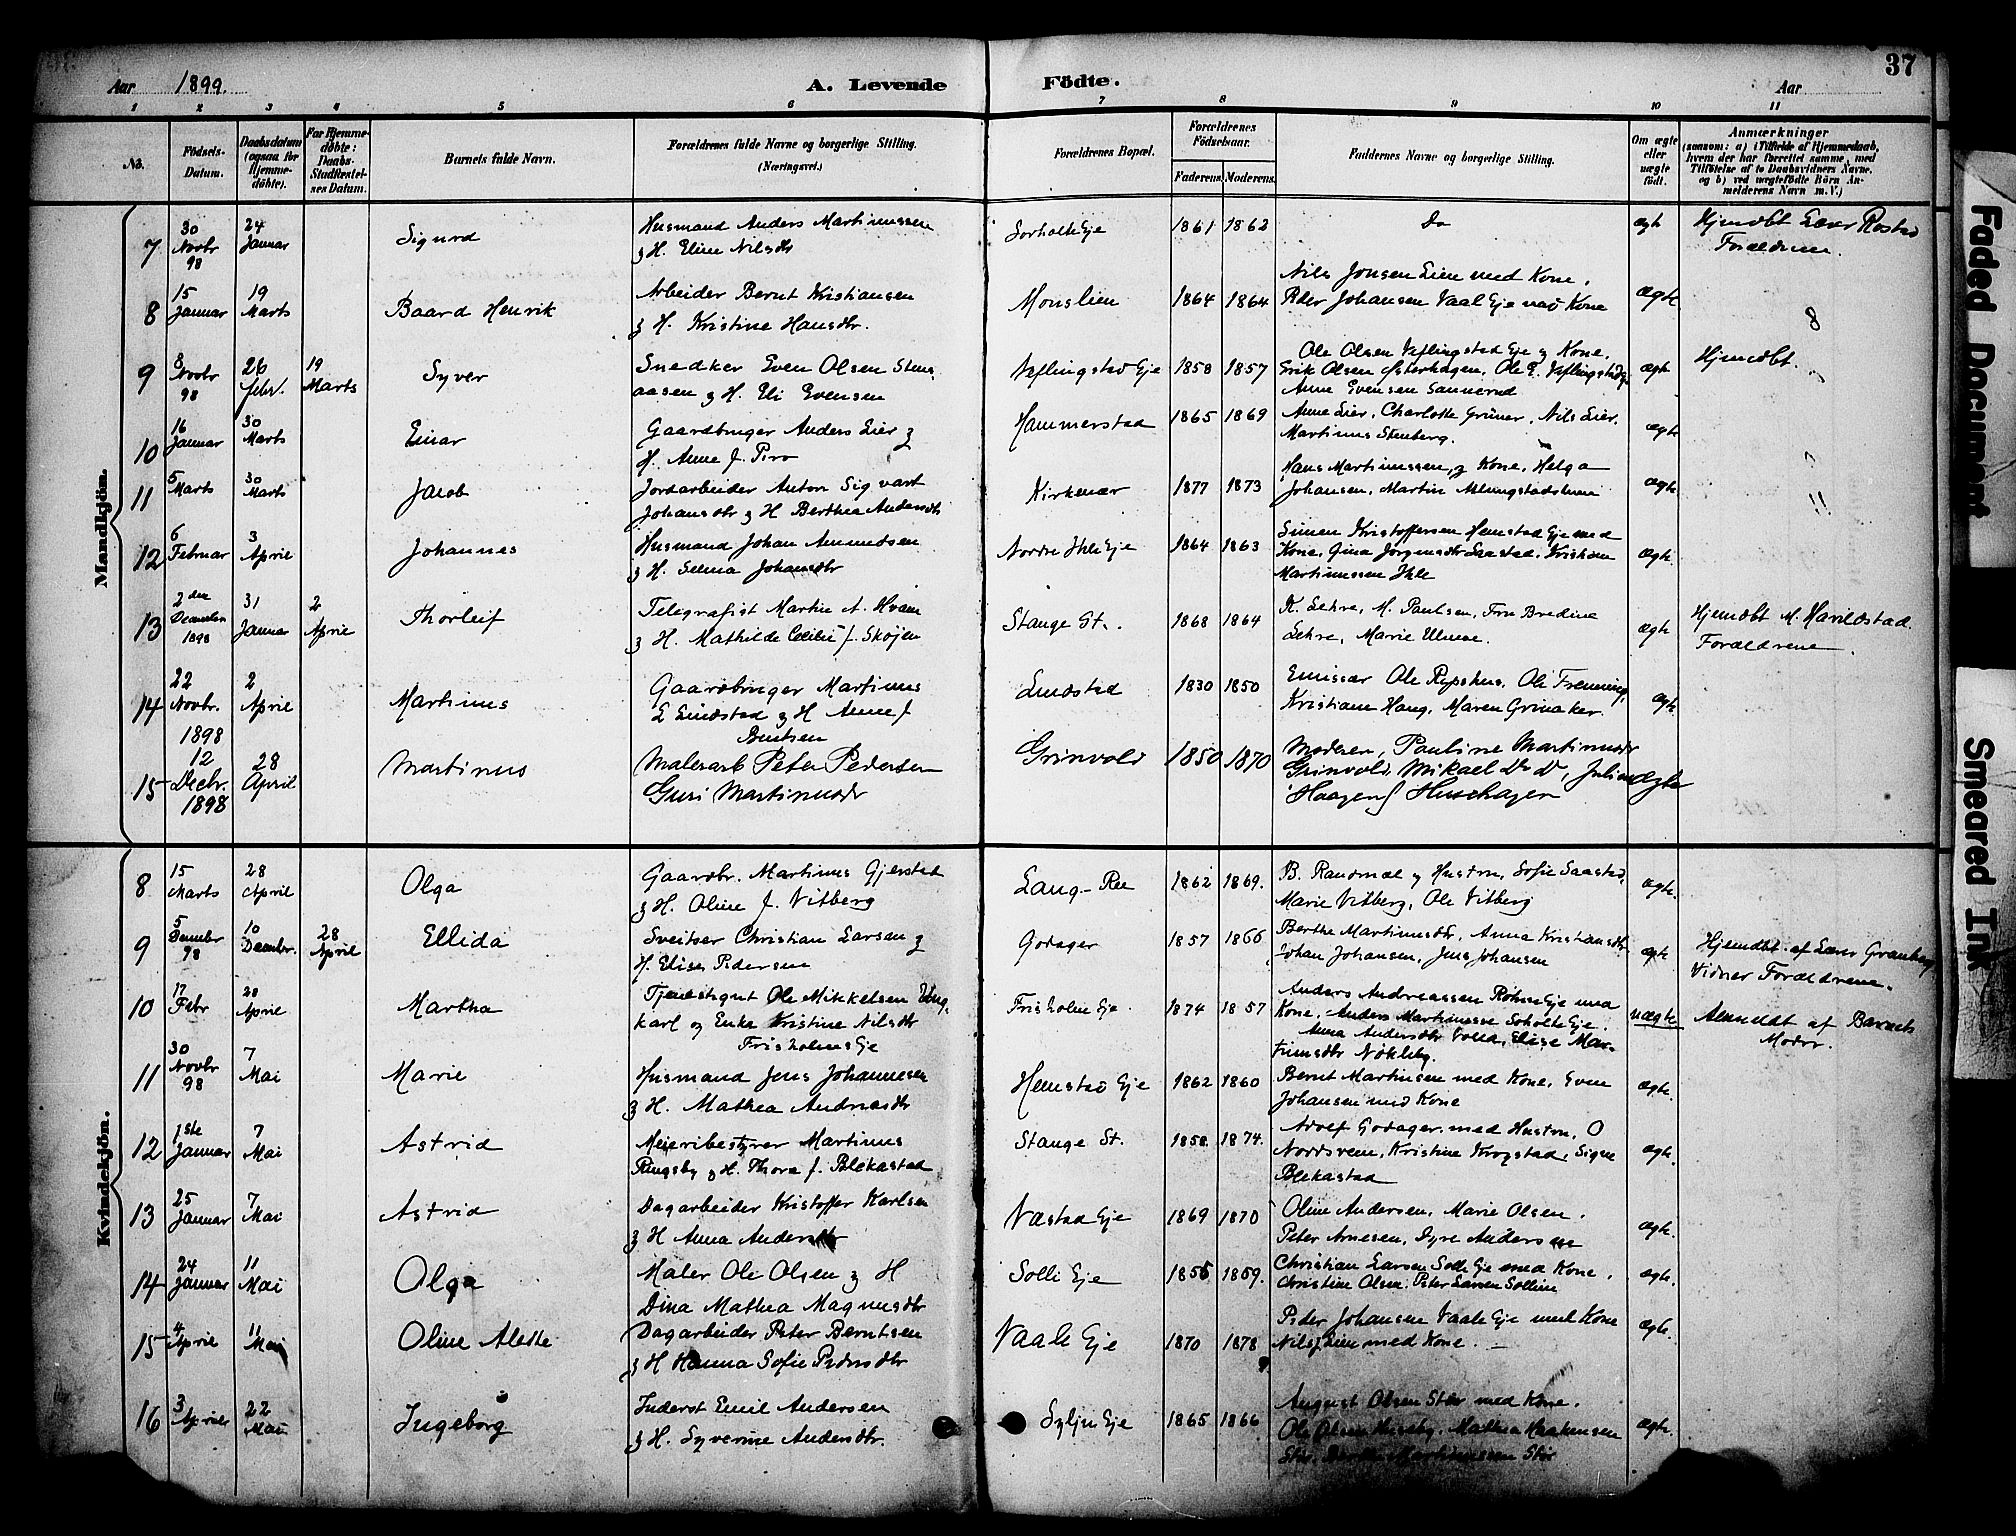 37
Aar 1899. A. Levende Födte. Aar
1 2 3 4 5 6 7 8 9 10 11
No. Födsels-Datum. Daabsdatum (ogsaa for Hjemme-döbte). For Hjemme-döbte: Daabs-Stadfæstel-ses Datum. Barnets fulde Navn. Forældrenes fulde Navne og borgerlige Stilling. (Næringsvei.) Forældrenes Bopæl. Forældrenes Födselsaar. Faderens. Moderens. Faddernes Navne og borgerlige Stilling. Om ægte eller uægte födt. Anmærkninger (saasom: a) i Tilfælde af Hjemmedaab, hvem der har forrettet samme, med Tilföielse af to Daabsvidners Navne. og b) ved uægtefödte Börn An-melderens Navn m. V.)
Mandkjön.
7 30 Novbr 98 24 Januar Sigurd Husmand Anders Martinussen
& H. Eline Nilsdtr Sorholte Eje 1861 1862 Do ægt Hjemdbt Lærer Rostad
Forældrene.
8 15 Januar 19 Marts Baard Henrik Arbeider Bernt Kristiansen
& H. Kristine Hansdtr. Monslien 1864 1864 Nils Jonsen Lien med Kone,
Peder Johansen Vaal Eje med Kone ægte 8
9 8 Novbr 98 26 febr. 19 Marts Syver Snedker Even Olsen Sten-
aasen & H. Eli Evensen Veflingstad Eje 1858 1857 Ole Olsen Veflingstad Eje & Kone,
Erik Olsen Østerhagen, Ole E. Veflingstad,
Anne Evensen Sannerud ægte Hjemdbt.
10 16 Januar 30 Marts Einar Gaardbruger Anders Lier &
H. Anne f. Piro Hammerstad 1865 1869 Anne Lier, Charlotte Grüner, Nils Lier,
Martinus Stenberg. ægte
11 5 Marts 30 Marts Jacob Jordarbeider Anton Sigvart
Johansdtr & H Berthea Andersdtr Kirkenær 1877 1873 Hans Martinussen & Kone, Helga
Johansen, Martin ægte 11
12 6 Februar 3 April Johannes Husmand Johan Amundsen
& H. Selma Johansdtr Nordre Ihle Eje 1864 1863 Simen Kristoffersen Hemstad Eje med
Kone, Gina Jørgensdtr Saastad, Kristian
Martinussen Ihle ægte
13 2den December 1898 31 Januar 2 April Thorleif Telegrafist Martin A. Hvam
& H. Mathilde Cecilie f. Skøjen Stange St. 1868 1864 K. Lehre, M. Paulsen, Fru Bredine
Lehre, Marie ægte Hjemdbt M. Harildstad.
Forældrene.
14 22 Novbr. 1898 2 April Martinus Gaardbruger Martinus
E Lindstad & H Anne f.
Bentsen Lindstad 1830 1850 Emissær Ole Rypshus, Ole Fremming,
Kristian Haug, Maren Grinaker. ægte
15 12 Decbr. 1898 28 April Martinus Malerarb Peter Pedersen
Guri Martinusdr Grinvold 1850 1870 Moderen, Pauline Martinusdr
Grinvold, Mikael Do Do, Julius
Haagens Husehagen ægte
Kvindekjön.
8 15 Marts 28 April Olga Gaardbr. Martinus Gjerstad
& H. Oline f. Vitberg Lang-Ree 1862 1869. B. Randmæl & Hustru, Sofie Saastad,
Marie Vitberg, Ole Vitberg ægte
9 5 Decembr 98 10 Decembr. 28 April Ellida Sveitser Christian Larsen &
H. Elise Pedersen Godager 1857 1866 Berthe Martinusdtr, Anna Kristiansdtr
Johan Johansen, Jens Johansen ægte Hjemdbt. af Lærer Granberg
Vidner Forældrene.
10 17 Febr 28 April Martha Tjenestegut Ole Mikkelsen Ung-
karl og Enke Kristine Nilsdtr
Frisholms Eje Frisholm Eje. 1874 1857 Anders Andreassen Rohne Eje med
Kone, Anders Martinussen Soholte Eje.
Anna Andersdtr Volla, Elise Mar-
tinusdtr Nøkleby. uægte Anmeldt af Barnets
Moder.
11 30 Novbr 98 7 Mai Marie Husmand Jens Johannesen
& H. Mathea Andreasdtr Hemstad Eje 1862 1860 Bernt Martinsen med Kone, Sven
Johansen med Kone ægte.
12 1ste Januar 7 Mai Astrid Meieribestyrer Martinus
Ringsby & H. Thora f. Blekastad Stange St. 1858 1874. Adolf Godager med Hustru, O
Nordsveen, Kristine Krogstad, Signe
Blekastad ægte.
13 25 Januar 7 Mai Astrid Dagarbeider Kristoffer Karlsen
& H Anna Andersdtr Næstad Eje 1869 1870 Oline Andersen, Marie Olsen.
Peter Arnesen, Syre Andersen ægte.
14 24 Januar 11 Mai Olga Maler Ole Olsen & H
Dina Mathea Magnusdtr Solli Eje 1855 1859. Christian Larsen Solli Eje med Kone,
Christine Olsen, Peter Larsen Sollien ægte.
15 4 April 11 Mai Oline Alette Dagarbeider Peter Berntsen
& H Hanna Sofie Pedersdtr Vaale Eje 1870 1878 Peder Johansen Vaale Eje med Kone
Nils J Lien med Kone. ægte.
16 3 April 22 Mai Ingeborg Inderst Emil Andersen
& H. Syverine Andersdtr. Sylju Eje 1865 1866 August Olsen Stør med Kone.
Ole Olsen Huseby, Mathea Haakensen
Stør, Martinussen Stør ægte.
Faded Document
Smeared Ink